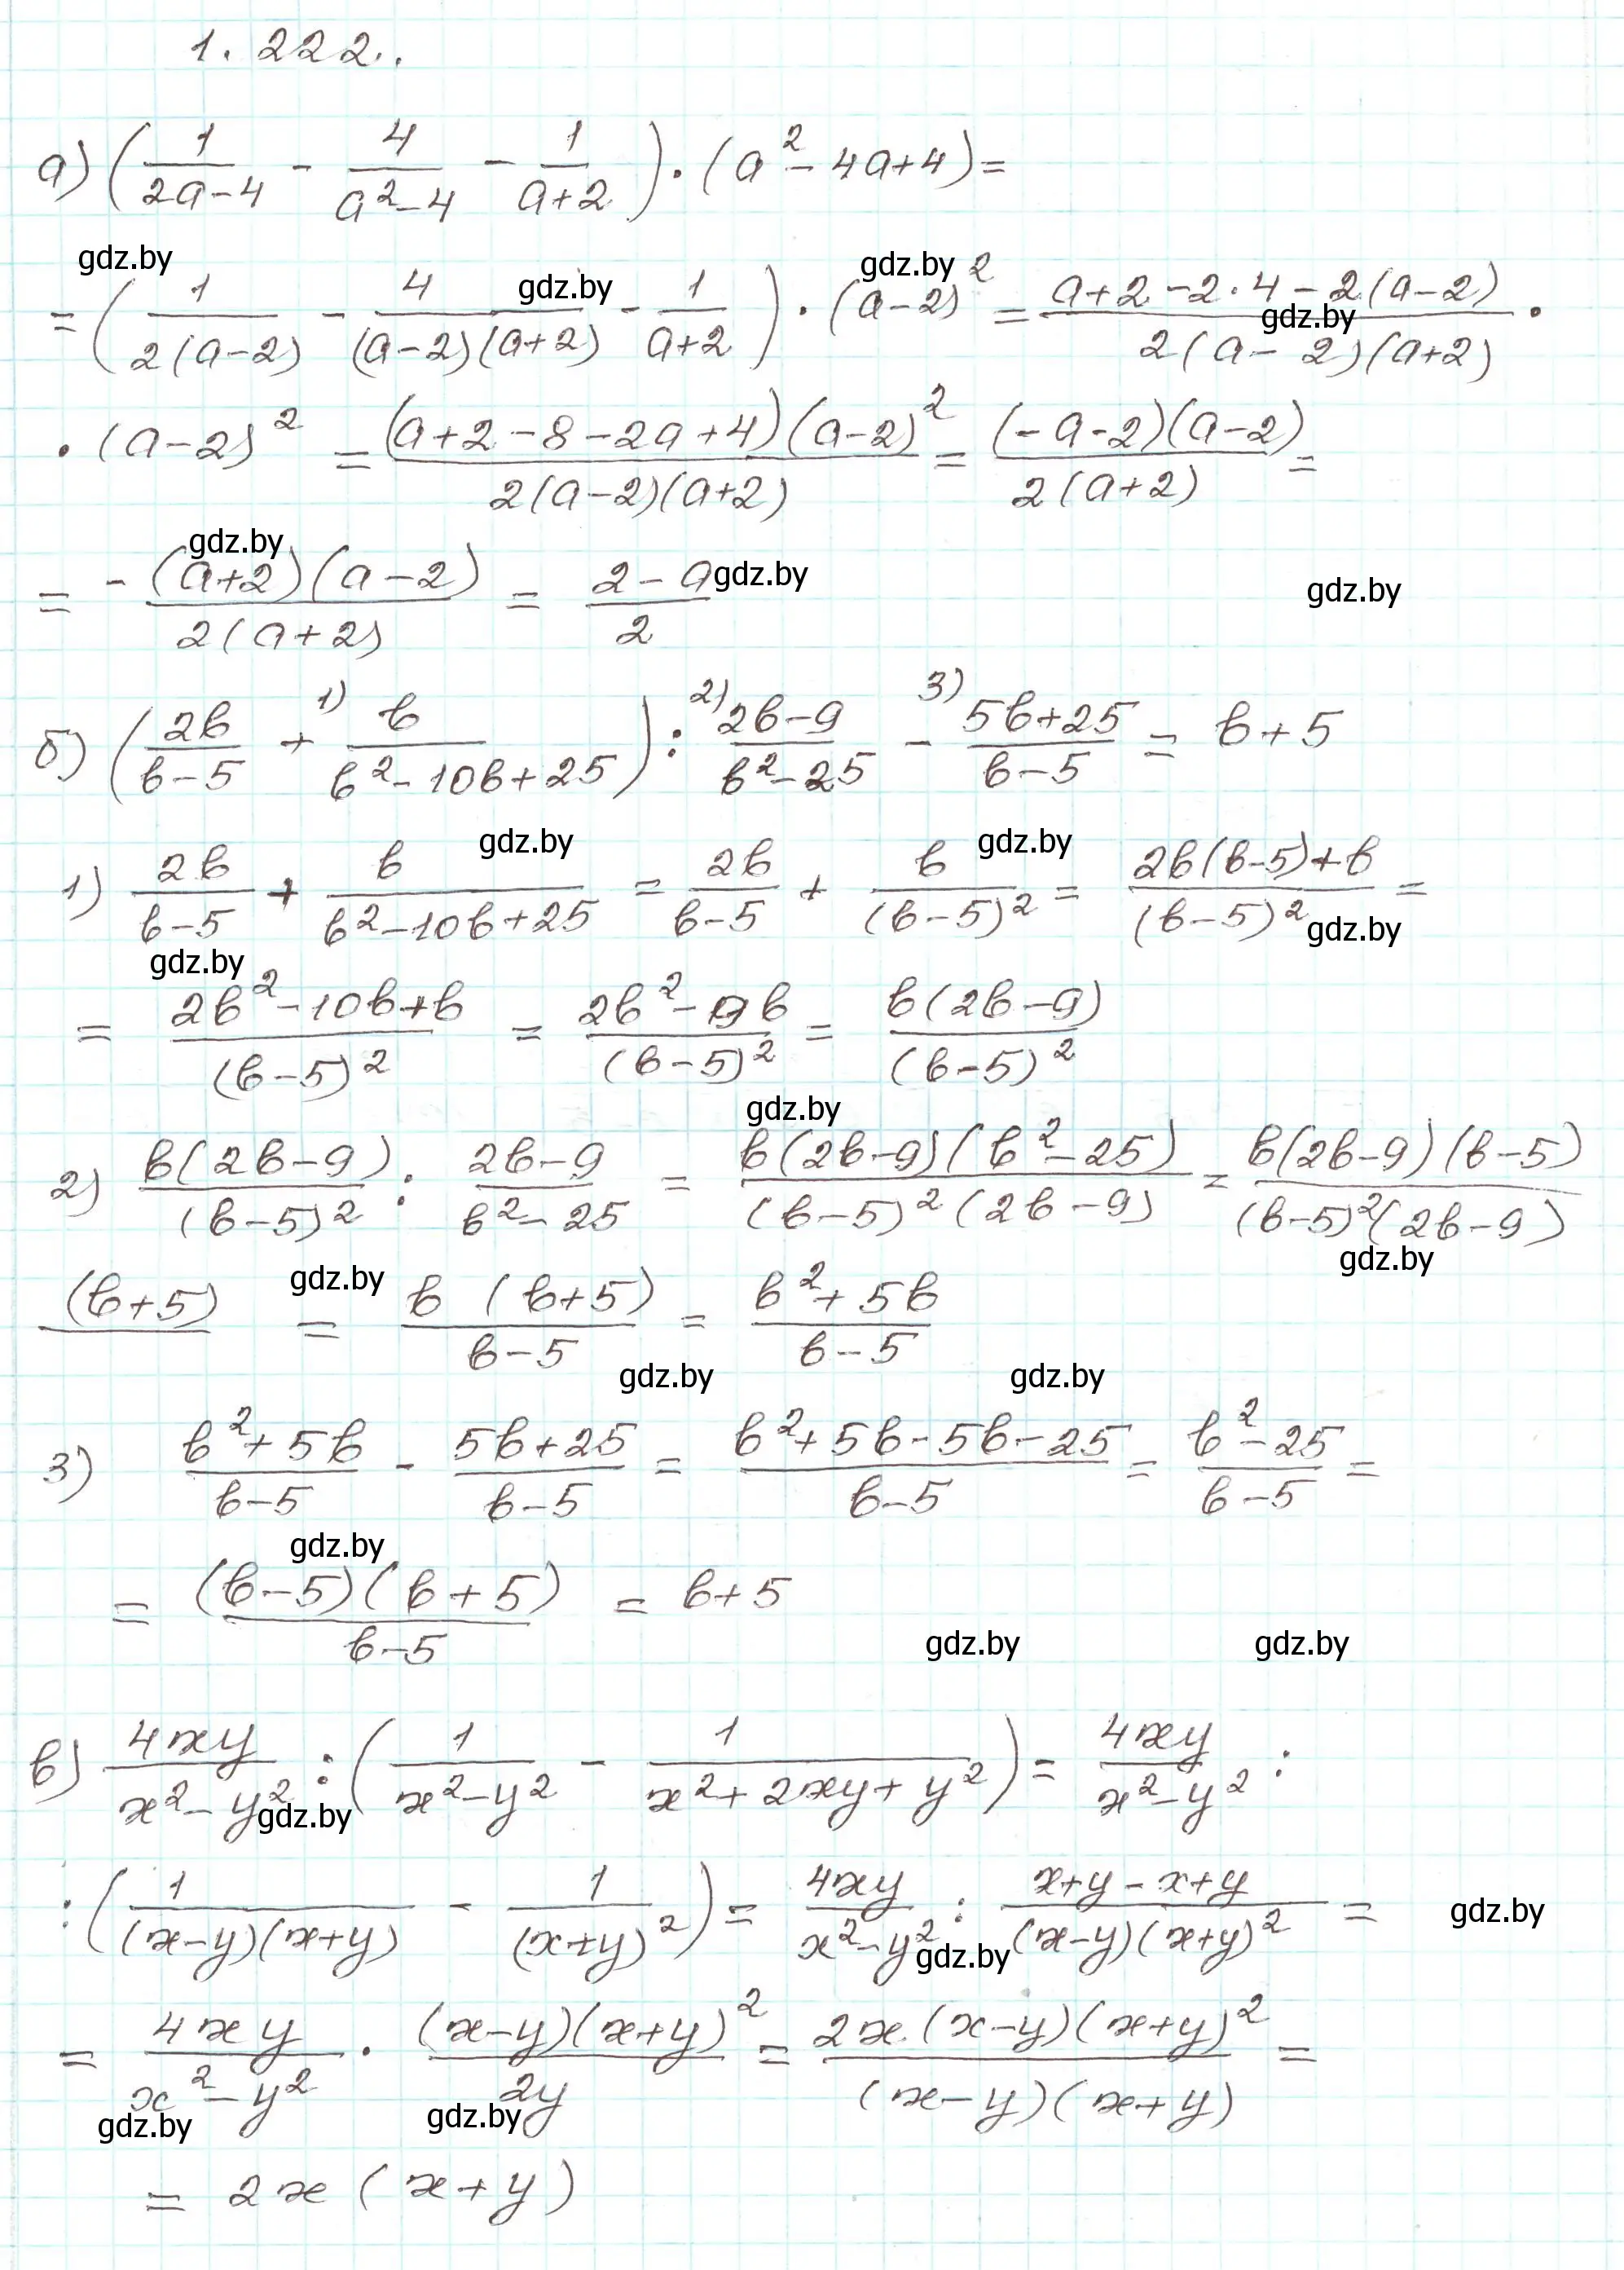 1.222.
а) (1/(2a-4) - 4/(a²-4) - 1/(a+2)) · (a²-4a+4) =
gdz.by gdz.by gdz.by gdz.by
= (1/(2(a-2)) - 4/((a-2)(a+2)) - 1/(a+2)) · (a-2)² = (a+2-2·4-2(a-2))/(2(a-2)(a+2)) ·
· (a-2)² = ((a+2-8-2a+4)(a-2)²)/(2(a-2)(a+2)) = ((-a-2)(a-2))/(2(a+2)) =
gdz.by gdz.by gdz.by
= (-(a+2)(a-2))/(2(a+2)) = (2-a)/2
1) 2) 3)
б) (2b/(b-5) + b/(b²-10b+25)) : (2b-9)/(b²-25) - (5b+25)/(b-5) = b+5
gdz.by gdz.by gdz.by
1) 2b/(b-5) + b/(b²-10b+25) = 2b/(b-5) + b/(b-5)² = (2b(b-5)+b)/(b-5)² =
gdz.by
= (2b²-10b+b)/(b-5)² = (2b²-9b)/(b-5)² = (b(2b-9))/(b-5)²
gdz.by
2) (b(2b-9))/(b-5)² : (2b-9)/(b²-25) = (b(2b-9)(b²-25))/((b-5)²(2b-9)) = (b(2b-9)(b-5))/((b-5)²(2b-9))
gdz.by gdz.by
(b+5) = (b(b+5))/(b-5) = (b²+5b)/(b-5)
gdz.by gdz.by
3) (b²+5b)/(b-5) - (5b+25)/(b-5) = (b²+5b-5b-25)/(b-5) = (b²-25)/(b-5) =
gdz.by
= ((b-5)(b+5))/(b-5) = b+5
gdz.by gdz.by
в) 4xy/(x²-y²) : (1/(x²-y²) - 1/(x²+2xy+y²)) = 4xy/(x²-y²) :
gdz.by
: (1/((x-y)(x+y)) - 1/(x+y)²) = 4xy/(x²-y²) : (x+y-x+y)/((x-y)(x+y)²) =
gdz.by gdz.by
= 4xy/(x²-y²) · ((x-y)(x+y)²)/2y = (2x(x-y)(x+y)²)/((x-y)(x+y)) =
gdz.by gdz.by
= 2x(x+y)